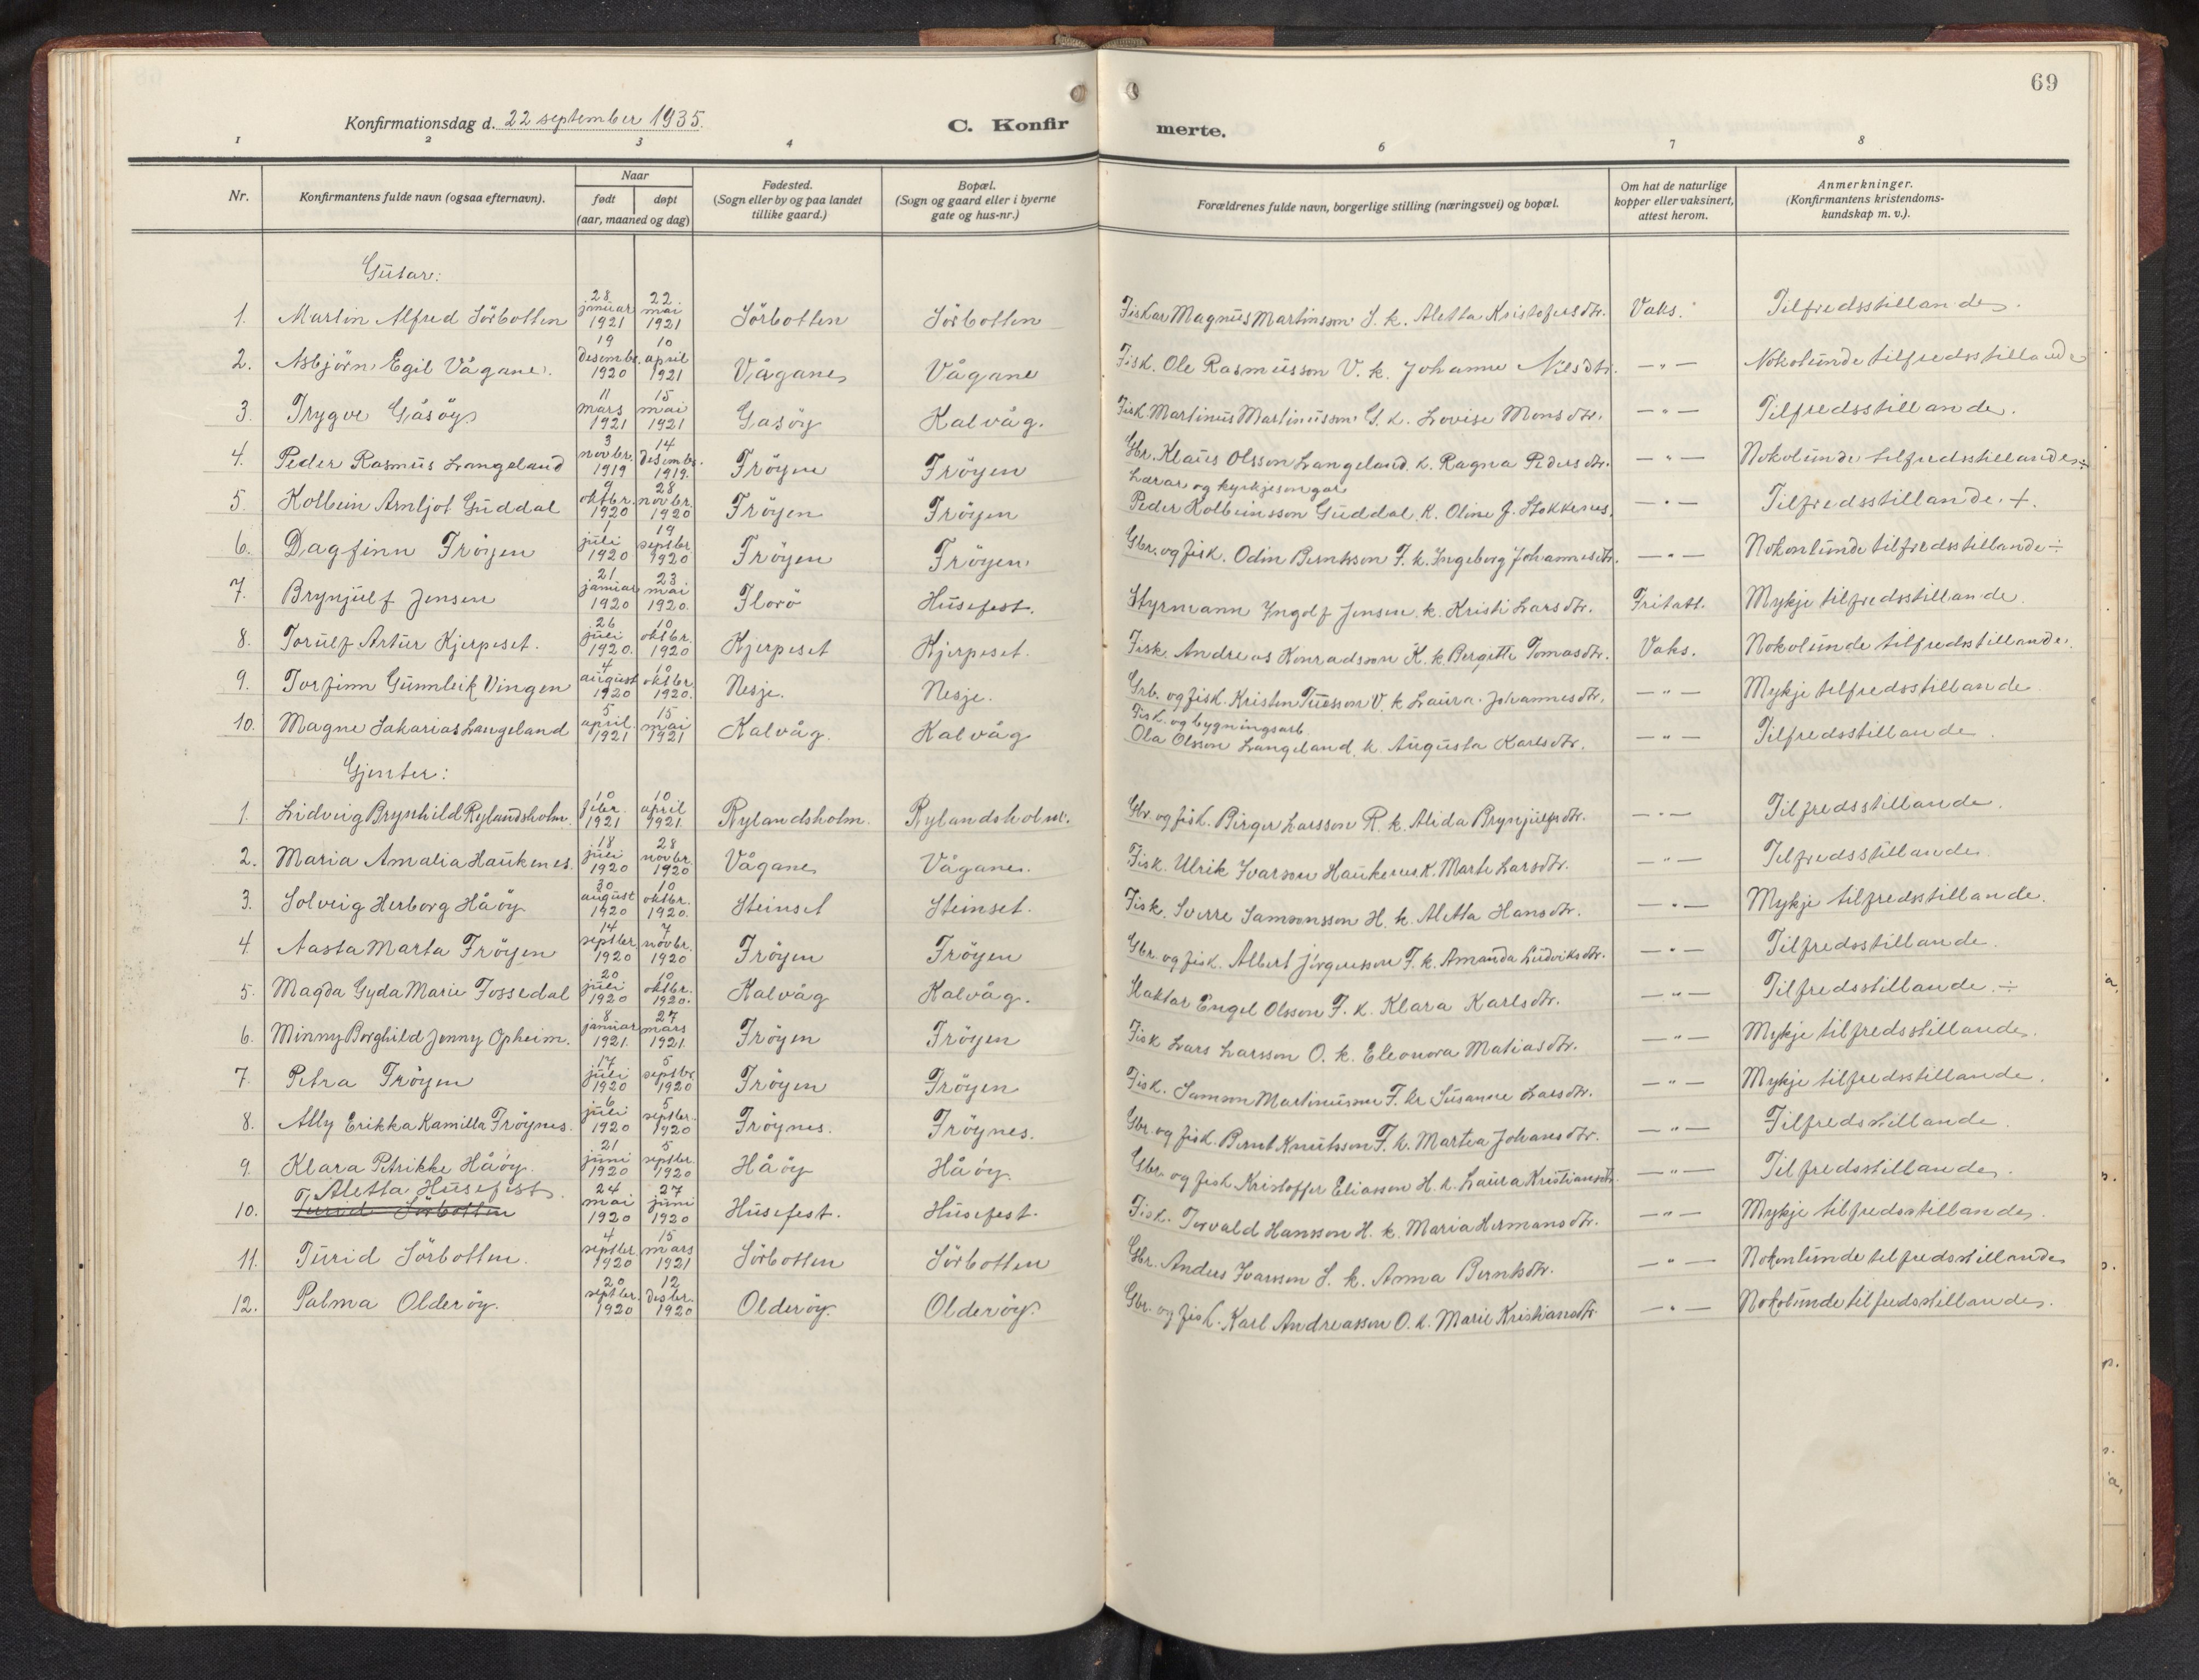 69
Konfirmationsdag d. 22 september 1935.
C. Konfirmerte.
1 2 3 4 6 7 8
Nr. Konfirmantens fulde navn (ogsaa efternavn). Naar født døpt (aar, maaned og dag) Fødested. (Sogn eller by og paa landet tillike gaard.) Bopæl. (Sogn og gaard eller i byerne gate og hus-nr.) Forældrenes fulde navn, borgerlige stilling (næringsvei) og bopæl. Om hat de naturlige kopper eller vaksinert, attest herom. Anmerkninger. (Konfirmantens kristendomskundskap m. v.).
Gutar:
1. Martin Alfred Sörbotten 28 januar 1921 22. mai 1921 Sörbotten Sörbotten Fiskar Magnus Martinsson S. k. Aletta Kristofersdtr. Vaks. Tilfredsstillande.
2. Asbjörn Egil Vågane. 19 desembr. 1920 10 april 1921 Vågane Vågane Fisk. Ole Rasmusson V. k. Johanne Nilsdtr. —"— Nokolunde tilfredsstillande
3. Trygve Gåsöy 11 mars 1921 15 mai 1921 Gasöy Kalvåg. Fisk. Martinus Martinusson G. k. Lovise Monsdtr. —"— Tilfredsstillande.
4. Peder Rasmus Langeland 3 novbr. 1919 14 desembr. 1919. Fröyen Fröyen Gbr. Klaus Olsson Langeland. k. Ragna Pedersdtr. —"— Nokolunde tilfredsstillande ÷
5. Kolbein Arnljot Guddal 9 oktbr. 1920 28 novbr. 1920 Fröyen Fröyen Lærar og kyrkjesongar Peder Kolbeinsson Guddal. k. Oline J. Stokkenes. —"— Tilfredsstillande. +.
6. Dagfinn Fröyen 1 juli 1920 19 septbr. 1920 Fröyen Fröyen. Gbr. og fisk. Odin Berntsson F. k. Ingeborg Johannesdtr. —"— Nokonlunde tilfredsstillande ÷
7. Brynjulf Jensen 21 januar 1920 23. mai 1920. Florö Husefest. Styrmann Ingolf Jensen k. Kristi Larsdtr. Fritatt. Mykje tilfredsstillande.
8. Torulf Artur Kjerpeset. 26 juli 1920. 10 oktbr. 1920 Kjerpeset Kjerpeset. Fisk. Andreas Konradsson K. k. Bergitte Tomasdtr. Vaks. Nokolunde tilfredsstillande.
9. Torfinn Gunnleik Vingen 4 august 1920 10 oktbr. 1920. Nesje. Nesje. Grb. og fisk. Kristen Tuesson V. k Laura Johannesdtr. —"— Mykje tilfredsstillande.
10. Magne Sakarias Langeland 5 april. 1921 15 mai 1921 Kalvåg. Kalvåg Fisk. og bygningsarb. Ola Olsson Langeland k. Augusta Karlsdtr. —"— Tilfredsstillande.
Gjenter:
1. Lidveig Brynhild Rylandsholm. 10 febr. 1921 10 april 1921. Rylandsholm. Rylandsholm. Gbr. og fisk. Birger Larsson R. k. Alida Brynjulfsdtr. —"— Tilfredsstillande.
2. Maria Amalia Haukenes. 18 juli 1920 28 novbr. 1920 Vågane Vågane. Fisk. Ulrik Ivarsson Haukenes K. Marte Larsdtr. —"— Tilfredsstillande
3. Solveig Herborg Håöy 30 august 1920 10 oktbr. 1920. Steinset Steinset. Fisk. Sverre Samsonsson H. k. Aletta Hansdtr. —"— Mykje tilfredsstillande.
4 Aasta Marta Fröyen 14 septbr 1920 7 novbr. 1920 Fröyen Fröyen Gbr. og fisk. Albert Jörgensson F. k. Amanda Ludviksdtr. —"— Tilfredsstillande.
5. Magda Gyda Marie Fossedal 20 juli 1920 10 oktbr. 1920. Kalvåg Kalvåg. Engel Olsson F. k. Klara Karlsdtr. —"— Tilfredsstillande. ÷
6. Minny Borghild Jenny Opheim. 8 januar 1921. 27 mars 1921. Fröyen Fröyen Fisk Lars Larsson O. k. Eleonora Matiasdtr. —"— Mykje tilfredsstillande.
7. Petra Fröyen 17 juli 1920 5 septbr 1920 Fröyen Fröyen Fisk. Samson Martinusson F. k. Susanne Larsdtr. —"— Mykje tilfredsstillande.
8. Ally Erikka Kamilla Fröynes. 6 juli 1920 5 septbr. 1920 Fröynes. Fröynes. Gbr. og fisk. Bernt Knutsson F. k. Martea Johansdtr. —"— Tilfredsstillande.
9. Klara Petrikke Håöy. 21 juni 1920 5 septbr. 1920 Håöy Håöy Gbr. og fisk Kristoffer Eliasson H. k. Laura Kristiansdtr. —"— Tilfredsstillande.
10. Aletta Husefest. Turid Sörbotten 24 mai 1920 27 juni 1920 Husefest. Husefest. Fisk. Torvald Hansson H. k. Maria Hermansdtr. —"— Mykje tilfredsstillande.
11. Turid Sörbotten. 4 septbr 1920 15 mars 1921 Sörbotten Sörbotten Gbr. Anders Ivarsson S. k. Anna Berntsdtr. —"— Nokonlunde tilfredsstillande
12. Palma Olderöy. 20 septbr. 1920 12 desbr. 1920 Olderöy. Olderöy. Gbr. og fisk. Karl Andreasson O. k. Marie Kristiansdtr. —"— Nokolunde tilfredsstillande.